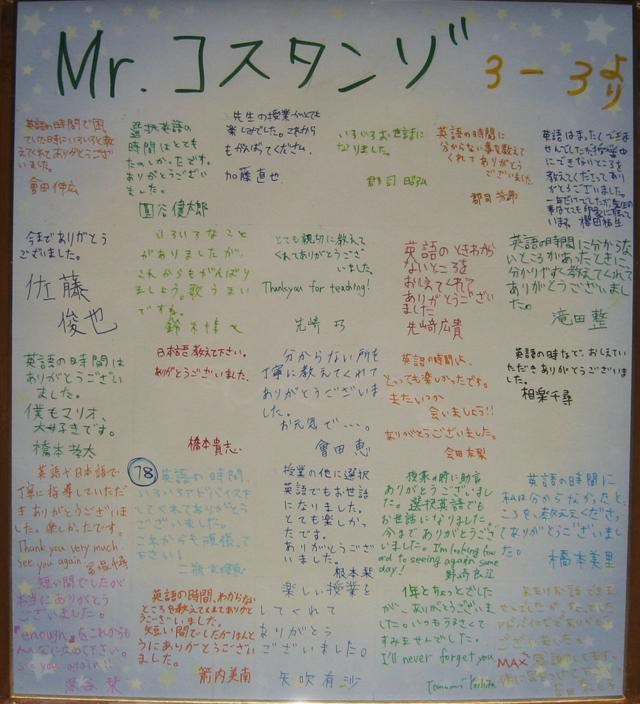 Mr. コスタンゾ
3-3より
英語の時間で困っ
ていた時にいろいろと教
えてくれてありがとうござ
いました。
會田伸広
選択英語の
時間はとても
たのしかったです。
ありがとうござい
ました。
國谷健太郎
先生の授業とっても
楽しみでした。これから
もがんばってください。
加藤直也
いろいろお世話に
なりました。
郡司
英語の時間に
分からない事を教えて
くれてありがとう
ございました
郡司
英語はまったくできま
せんでしたが
にできないところを
教えてくださってあり
がとうございました。
今までありがとう
ございました。
佐藤
俊也
いろいろなこと
がありましたが、
これからもがんばり
ましょう。歌うまい
ですね。
鈴木
とても親切に教えて
くれてありがとうござ
いました。
Thank you for teaching!
先崎 巧
英語のときわから
ないところを
おしえてくれて
ありがとうござい
ました
先崎広貴
英語の時間に分からな
いところがあったときに
分かりやすく教えてくれて
ありがとうございまし
た。
滝田 整
英語の時間は
ありがとうござい
ました。
僕もマリオ、
大好きです。
橋本
日本語教えて下さい。
ありがとうございました。
橋本貴志
分からない所を
丁寧に教えてくれて
ありがとうございま
した。
お元気で…。
會田 恵
英語の時間は、
とっても楽しかったです。
またいつか
会いましょう!!
ありがとうございました。
会田友梨
英語の時など、おしえてい
ただきありがとうございま
した。
相楽千尋
英語や日本語で
丁寧に指導していただ
きありがとうございまし
た。楽しかったです。
Thank you very much.
see you again.
78
英語の時間、
いろいろアドバイスを
してくれてありがとう
ございました。
これからも頑張って
下さい!
授業の他に選択
英語でもお世話
になりました。
とても楽しかっ
たです。
ありがとうござ
いました。
根本 栞
授業の時に助言
ありがとうございまし
た。選択英語でも
お世話になりました。
今までありがとうござ
いました。I'm looking for
ward to seeing again some
day!
英語の時間に
私は分からなかったと
ころを、教えてくださっ
てありがとうございまし
た。
橋本美里
短い間でしたが
本当にありがとう
ございました。
『enough』をこれからも
みんなに広めて下さい。
see you again!!
深谷 栞
英語の時間、わからな
いところを教えてくれてありがと
うございました。
短い間でしたがほんと
うにありがとうござい
ました。
箭内美南
楽しい授業を
してくれて
ありがとう
ございました。
矢吹有沙
1年とちょっとでした
が、ありがとうございま
した。いつもうるさくて
すみませんでした。
I'll never forget you
MAX